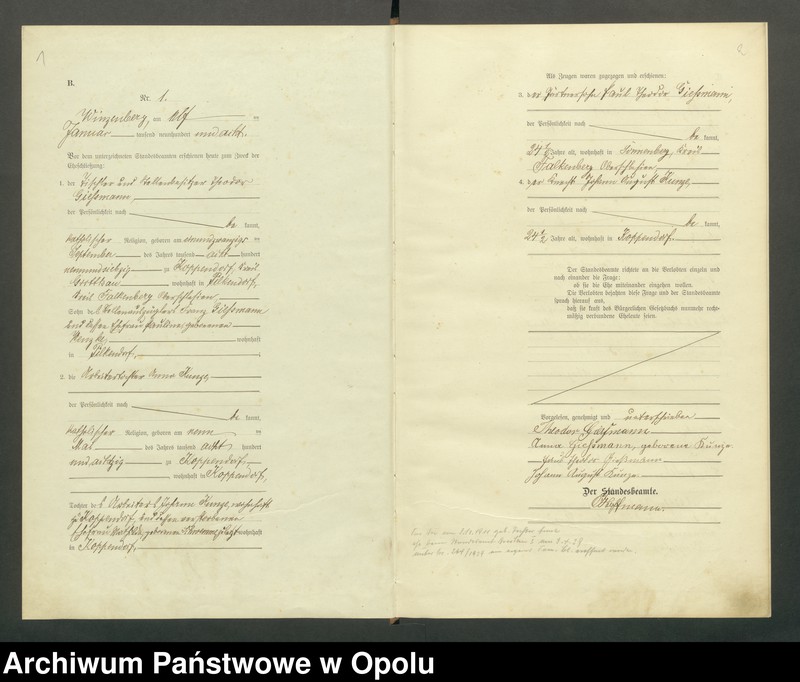 1
B.
Nr. 1.
Winzenberg, am elf ten
Januar tausend neunhundert und acht.
Vor dem unterzeichneten Standesbeamten erschienen heute zum Zweck der
Eheschließung:
1. der Tischler und Stellenbesitzer Theodor
Gießmann,
der Persönlichkeit nach
be kannt,
katholischer Religion, geboren am
September des Jahres tausend acht hundert
neunundsiebzig zu Koppendorf, Kreis
Grottkau wohnhaft in
Kreis Falkenberg Oberschlesien,
Sohn des Franz Gießmann
und dessen Ehefrau Pauline geborenen
wohnhaft
in
2. die Arbeitertochter Anna Kunze,
der Persönlichkeit nach
be kannt,
katholischer Religion, geboren am neun ten
Mai des Jahres tausend acht hundert
und achtzig zu Koppendorf,
wohnhaft in Koppendorf,
Tochter des Arbeiters Johann Kunze, wohnhaft
zu Koppendorf, und dessen verstorbenen
Ehefrau geborenen wohnhaft
in Koppendorf,
2
Als Zeugen waren zugezogen und erschienen:
3. der Gärtnersohn Paul Theodor Gießmann,
der Persönlichkeit nach
be kannt,
24 1/2 Jahre alt, wohnhaft in Sonnenberg, Kreis
Falkenberg Oberschlesien,
4. der Knecht Johann August Kunze,
der Persönlichkeit nach
be kannt,
24 1/2 Jahre alt, wohnhaft in Koppendorf.
Der Standesbeamte richtete an die Verlobten einzeln und
nach einander die Frage:
ob sie die Ehe miteinander eingehen wollen.
Die Verlobten bejahten diese Frage und der Standesbeamte
sprach hierauf aus,
daß sie kraft des Bürgerlichen Gesetzbuchs nunmehr recht-
mäßig verbundene Eheleute seien.
Vorgelesen, genehmigt und unterschrieben
Theodor Gießmann
Anna Giessmann, geborene Kunze
Paul Theodor Gießmann
Johann August Kunze
Der Standesbeamte.
Hoffmann.
Archiwum Państwowe w Opolu